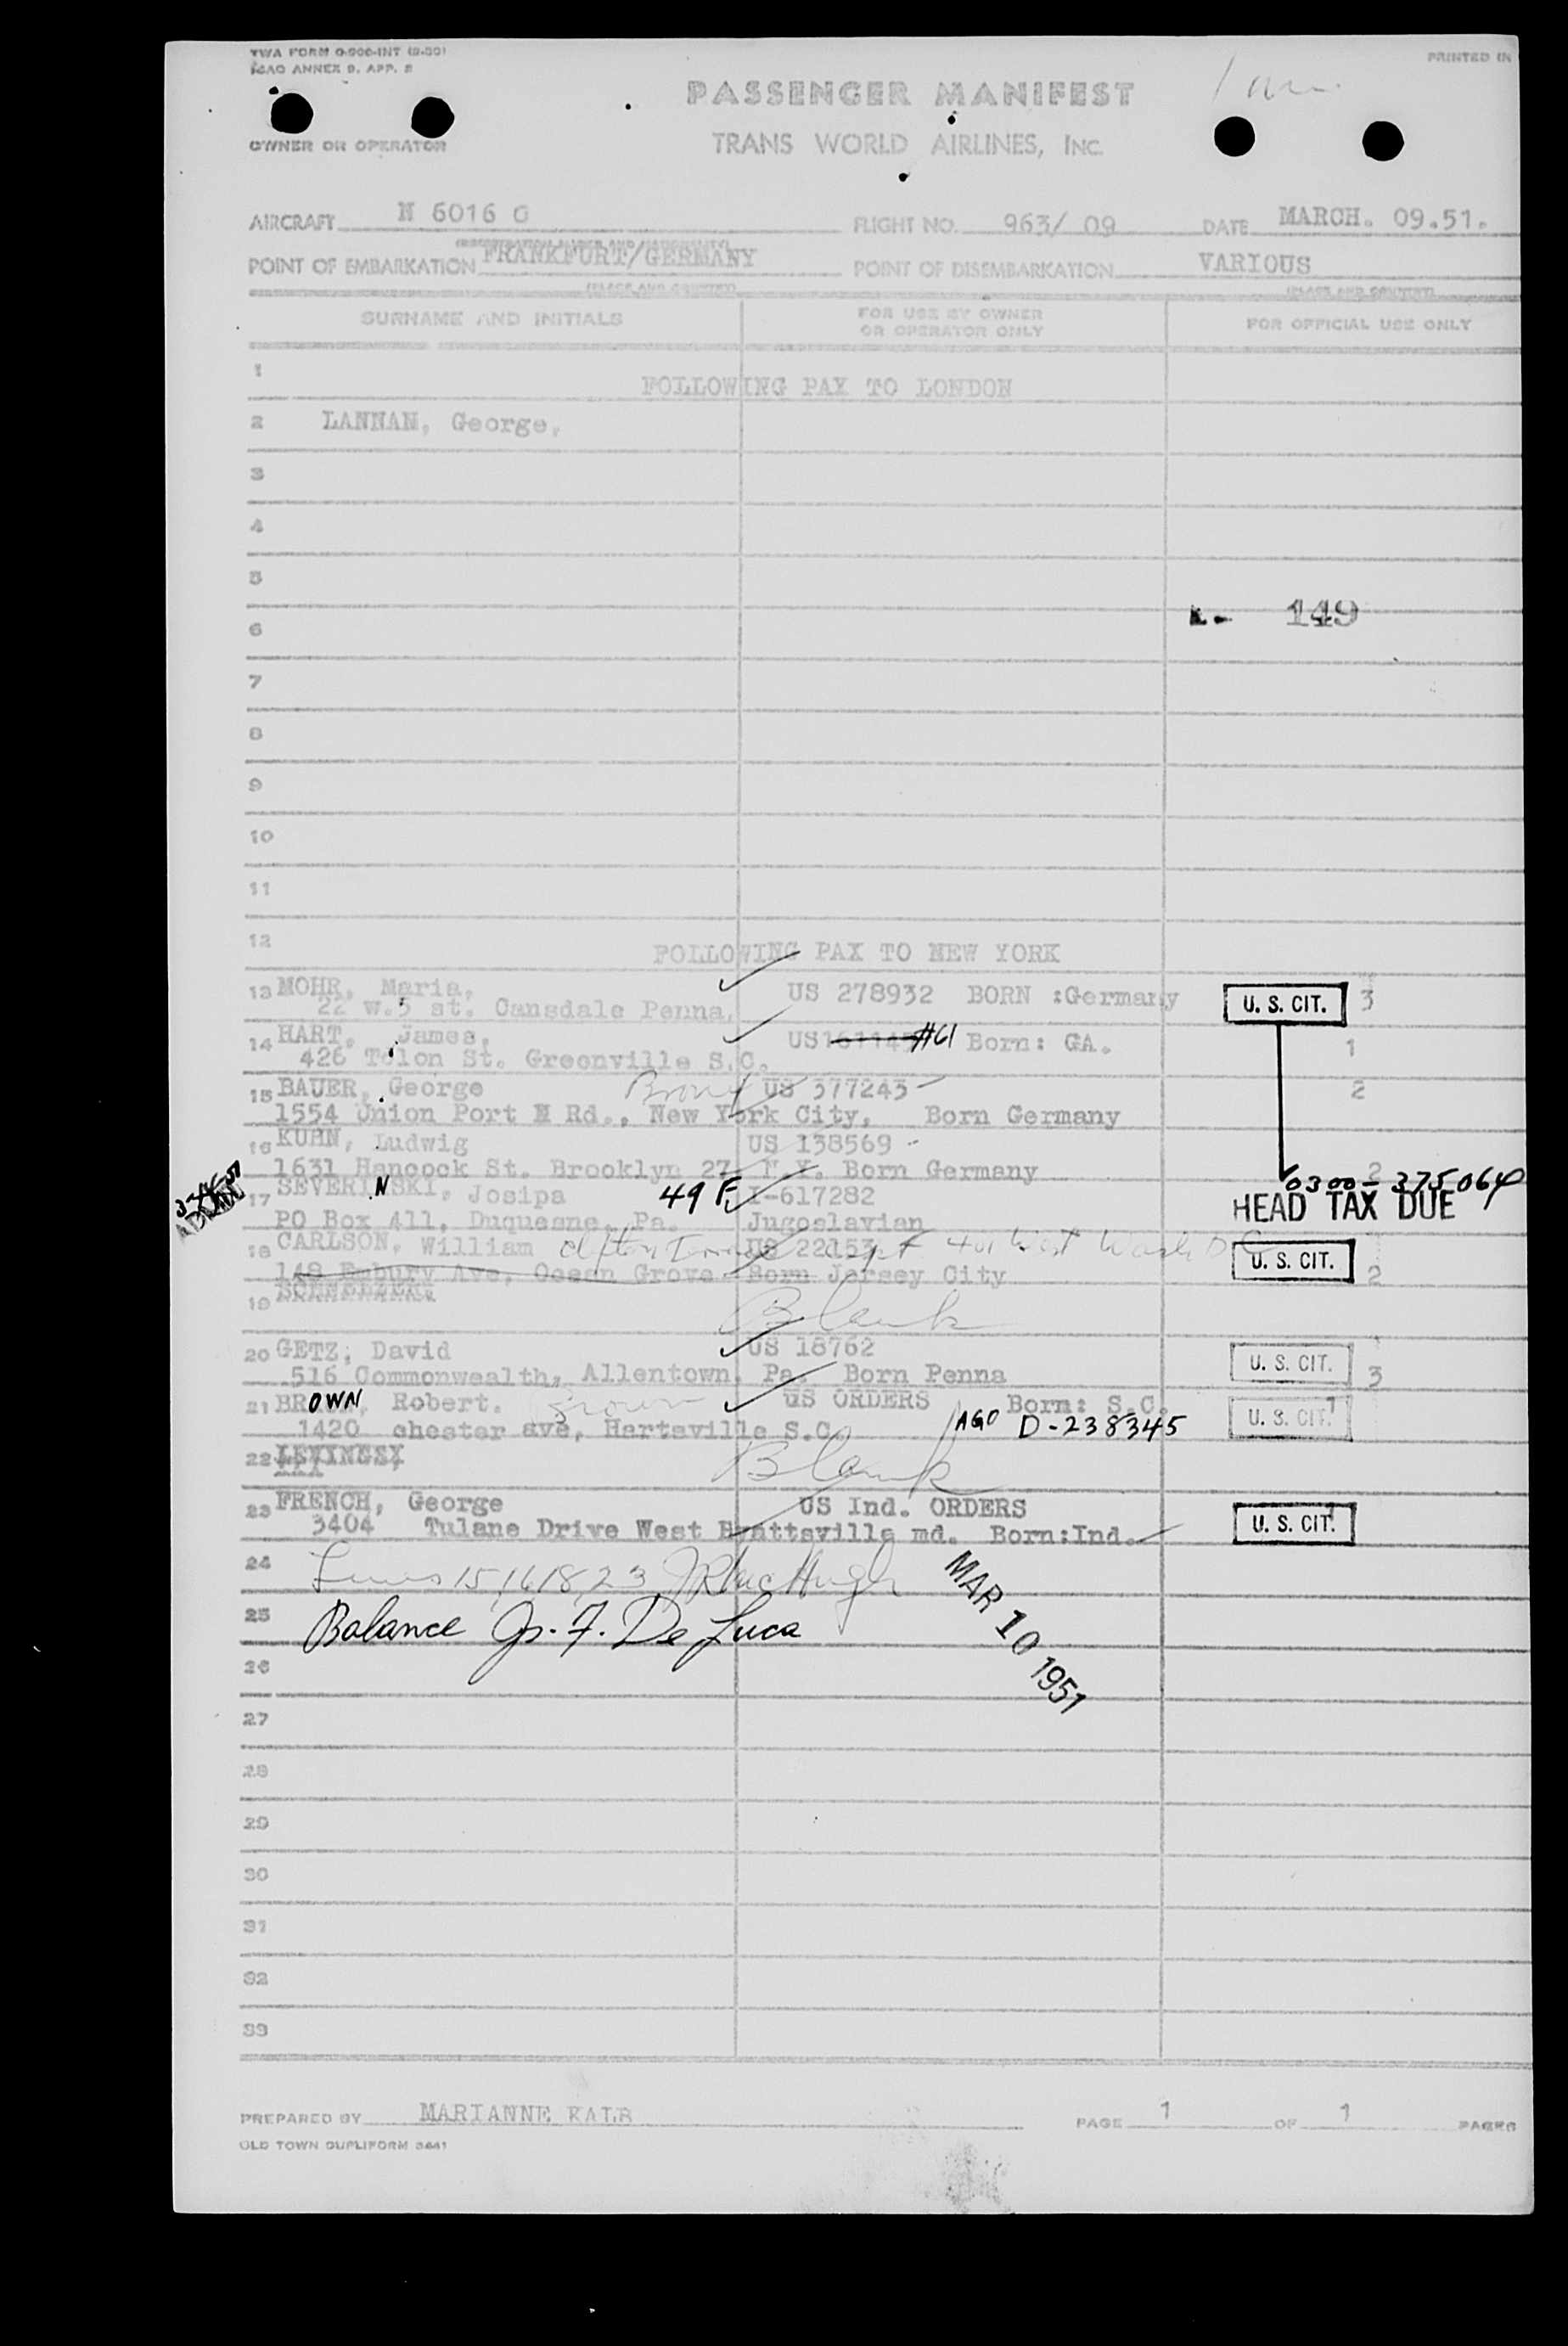 TWA FORM O-900-INT (9-50)
ICAO ANNEX 9, APP. 2
PRINTED IN
PASSENGER MANIFEST
OWNER OR OPERATOR
TRANS WORLD AIRLINES, INC.
AIRCRAFT N 6016 C FLIGHT NO. 963/ 09 DATE MARCH. 09.51.
(REGISTRATION MARKS AND NATIONALITY)
POINT OF EMBARKATION FRANKFURT/GERMANY POINT OF DISEMBARKATION VARIOUS
(PLACE AND COUNTRY) (PLACE AND COUNTRY)
SURNAME AND INITIALS FOR USE BY OWNER OR OPERATOR ONLY FOR OFFICIAL USE ONLY
1 FOLLOWING PAX TO LONDON
2 LANNAN, George,
3
4
5
6 149
7
8
9
10
11
12 FOLLOWING PAX TO NEW YORK
13 MOHR, Maria, US 278932 BORN :Germany U. S. CIT. 3
22 W.5 st. Cansdale Penna.
14 HART, James, US #61 Born: GA. 1
426 Tolon St. Greenville S.C.
15 BAUER, George Bronx US 377243 2
1554 Union Port Rd., New York City, Born Germany
16 KUHN, Ludwig US 138569
1631 Hancock St. Brooklyn 27, N.Y. Born Germany 2
17 SEVERINSKI, Josipa 49 F I-617282 0300-375064
HEAD TAX DUE
PO Box 411, Duquesne, Pa. Jugoslavian
18 CARLSON, William US 22153 U. S. CIT.
148 Embury Ave, Ocean Grove Born Jersey City 2
19 Blank
20 GETZ, David US 18762 U. S. CIT.
516 Commonwealth, Allentown, Pa. Born Penna 3
21 BROWN, Robert. Brown US ORDERS Born: S.C. U. S. CIT. 1
1420 chester ave, Hartsville S.C. AGO D-238345
22 Blank
23 FRENCH, George US Ind. ORDERS U. S. CIT. 1
3404 Tulane Drive West Hyattsville md. Born:Ind.
24 Lines 15,16,18,23 J R MacHugh
25 Balance Jos. F. De Luca
MAR 10 1951
26
27
28
29
30
31
32
33
PREPARED BY MARIANNE KALB PAGE 1 OF 1 PAGES
OLD TOWN DUPLIFORM 3441